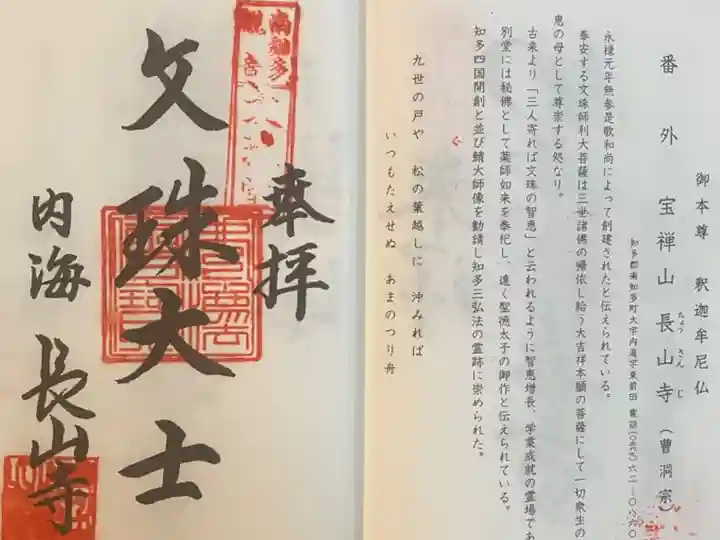 番外 宝禅山 長山寺(曹洞宗)
ちょうさんじ
御本尊 釈迦牟尼仏
知多郡南知多町大字内海字東前田 電話(〇五六九)六二ー〇八六〇
永禄元年無参是敬和尚によって創建されたと伝えられている。
奉安する文珠師利大菩薩は三世諸佛の帰依し給う大吉祥本願の菩薩にして一切衆生の
恵の母として尊崇する処なり。
古来より「三人寄れば文珠の智恵」と云われるように智恵増長、学業成就の霊場であ
別堂には秘佛として薬師如来を奉祀し、遠く聖徳太子の御作と伝えられている。
知多四国開創と並び鯖大師像を勧請し知多三弘法の霊跡に崇められた。
九世の戸や 松の葉越しに 沖みれば
いつもたえせぬ あまのつり舟
奉拝
南知多
観音
文珠大士
内海 長山寺